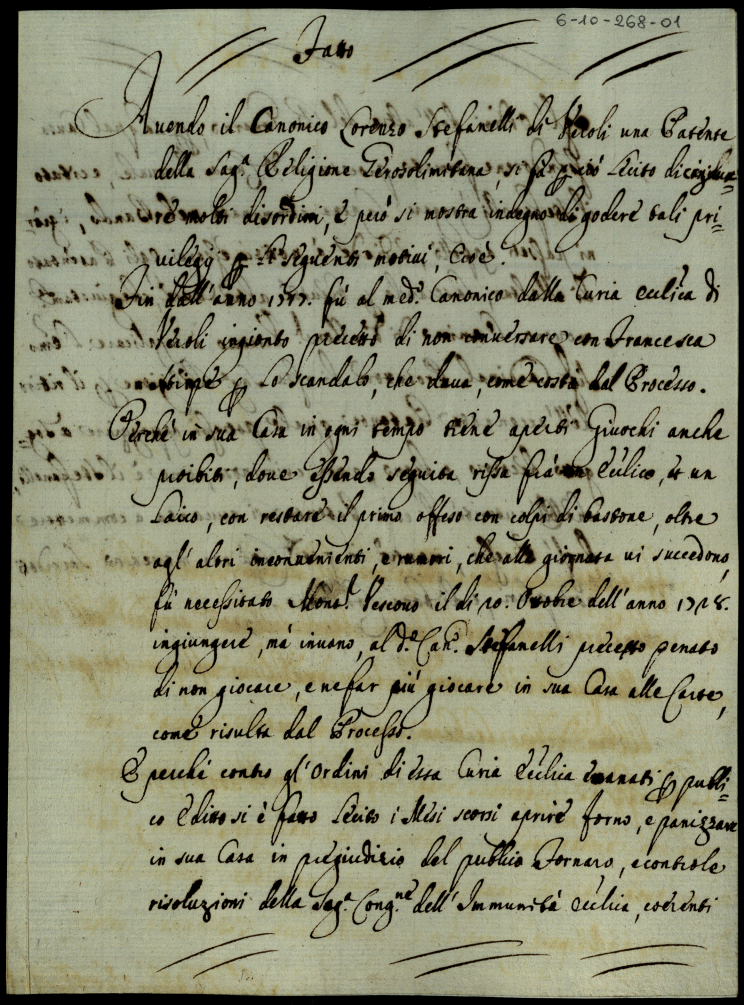 6-10-268-01
Fatto
Avendo il Canonico Lorenzo Stefanelli di Veroli una Patente
della Sag.ª Religione Gerosolimitana, si fà perciò lecito di cagiona=
re molti disordini, e però si mostra indegno di godere tali pri=
vilegj p li seguenti motivi, Cioè.
Fin dall'anno 1727. fù al med.º Canonico dalla Curia Eccl̃ica di
Veroli ingionto precetto di non conversare con Francesca
p lo scandalo, che dava, come costa dal Processo.
Perche in sua Casa in ogni tempo tiene aperti Giuochi anche
proibiti, dove essendo seguita rissa frà un Eccl̃ico, et un
Laico, con restare il primo offeso con colpi di bastone, oltre
agl'altri inconvenienti, e rumori, che alla giornata vi succedono,
fù necessitato Mons.r Vescovo il dì 20. Ottobre dell'anno 1728.
ingiungere, mà invano, al d.º Can.º Stefanelli precetto penato
di non giocare, e ne far più giocare in sua Casa alle Carte,
come risulta dal Processo.
E perche contro gl'Ordini di essa Curia Eccl̃ica emanati p publi=
co Editto si è fatto lecito i Mesi scorsi aprire forno, e panizzare
in sua Casa in pregiudizio del publico Fornaro, e contro le
risoluzioni della Sag.ª Cong.ne dell'Immunità Eccl̃ica, coerenti